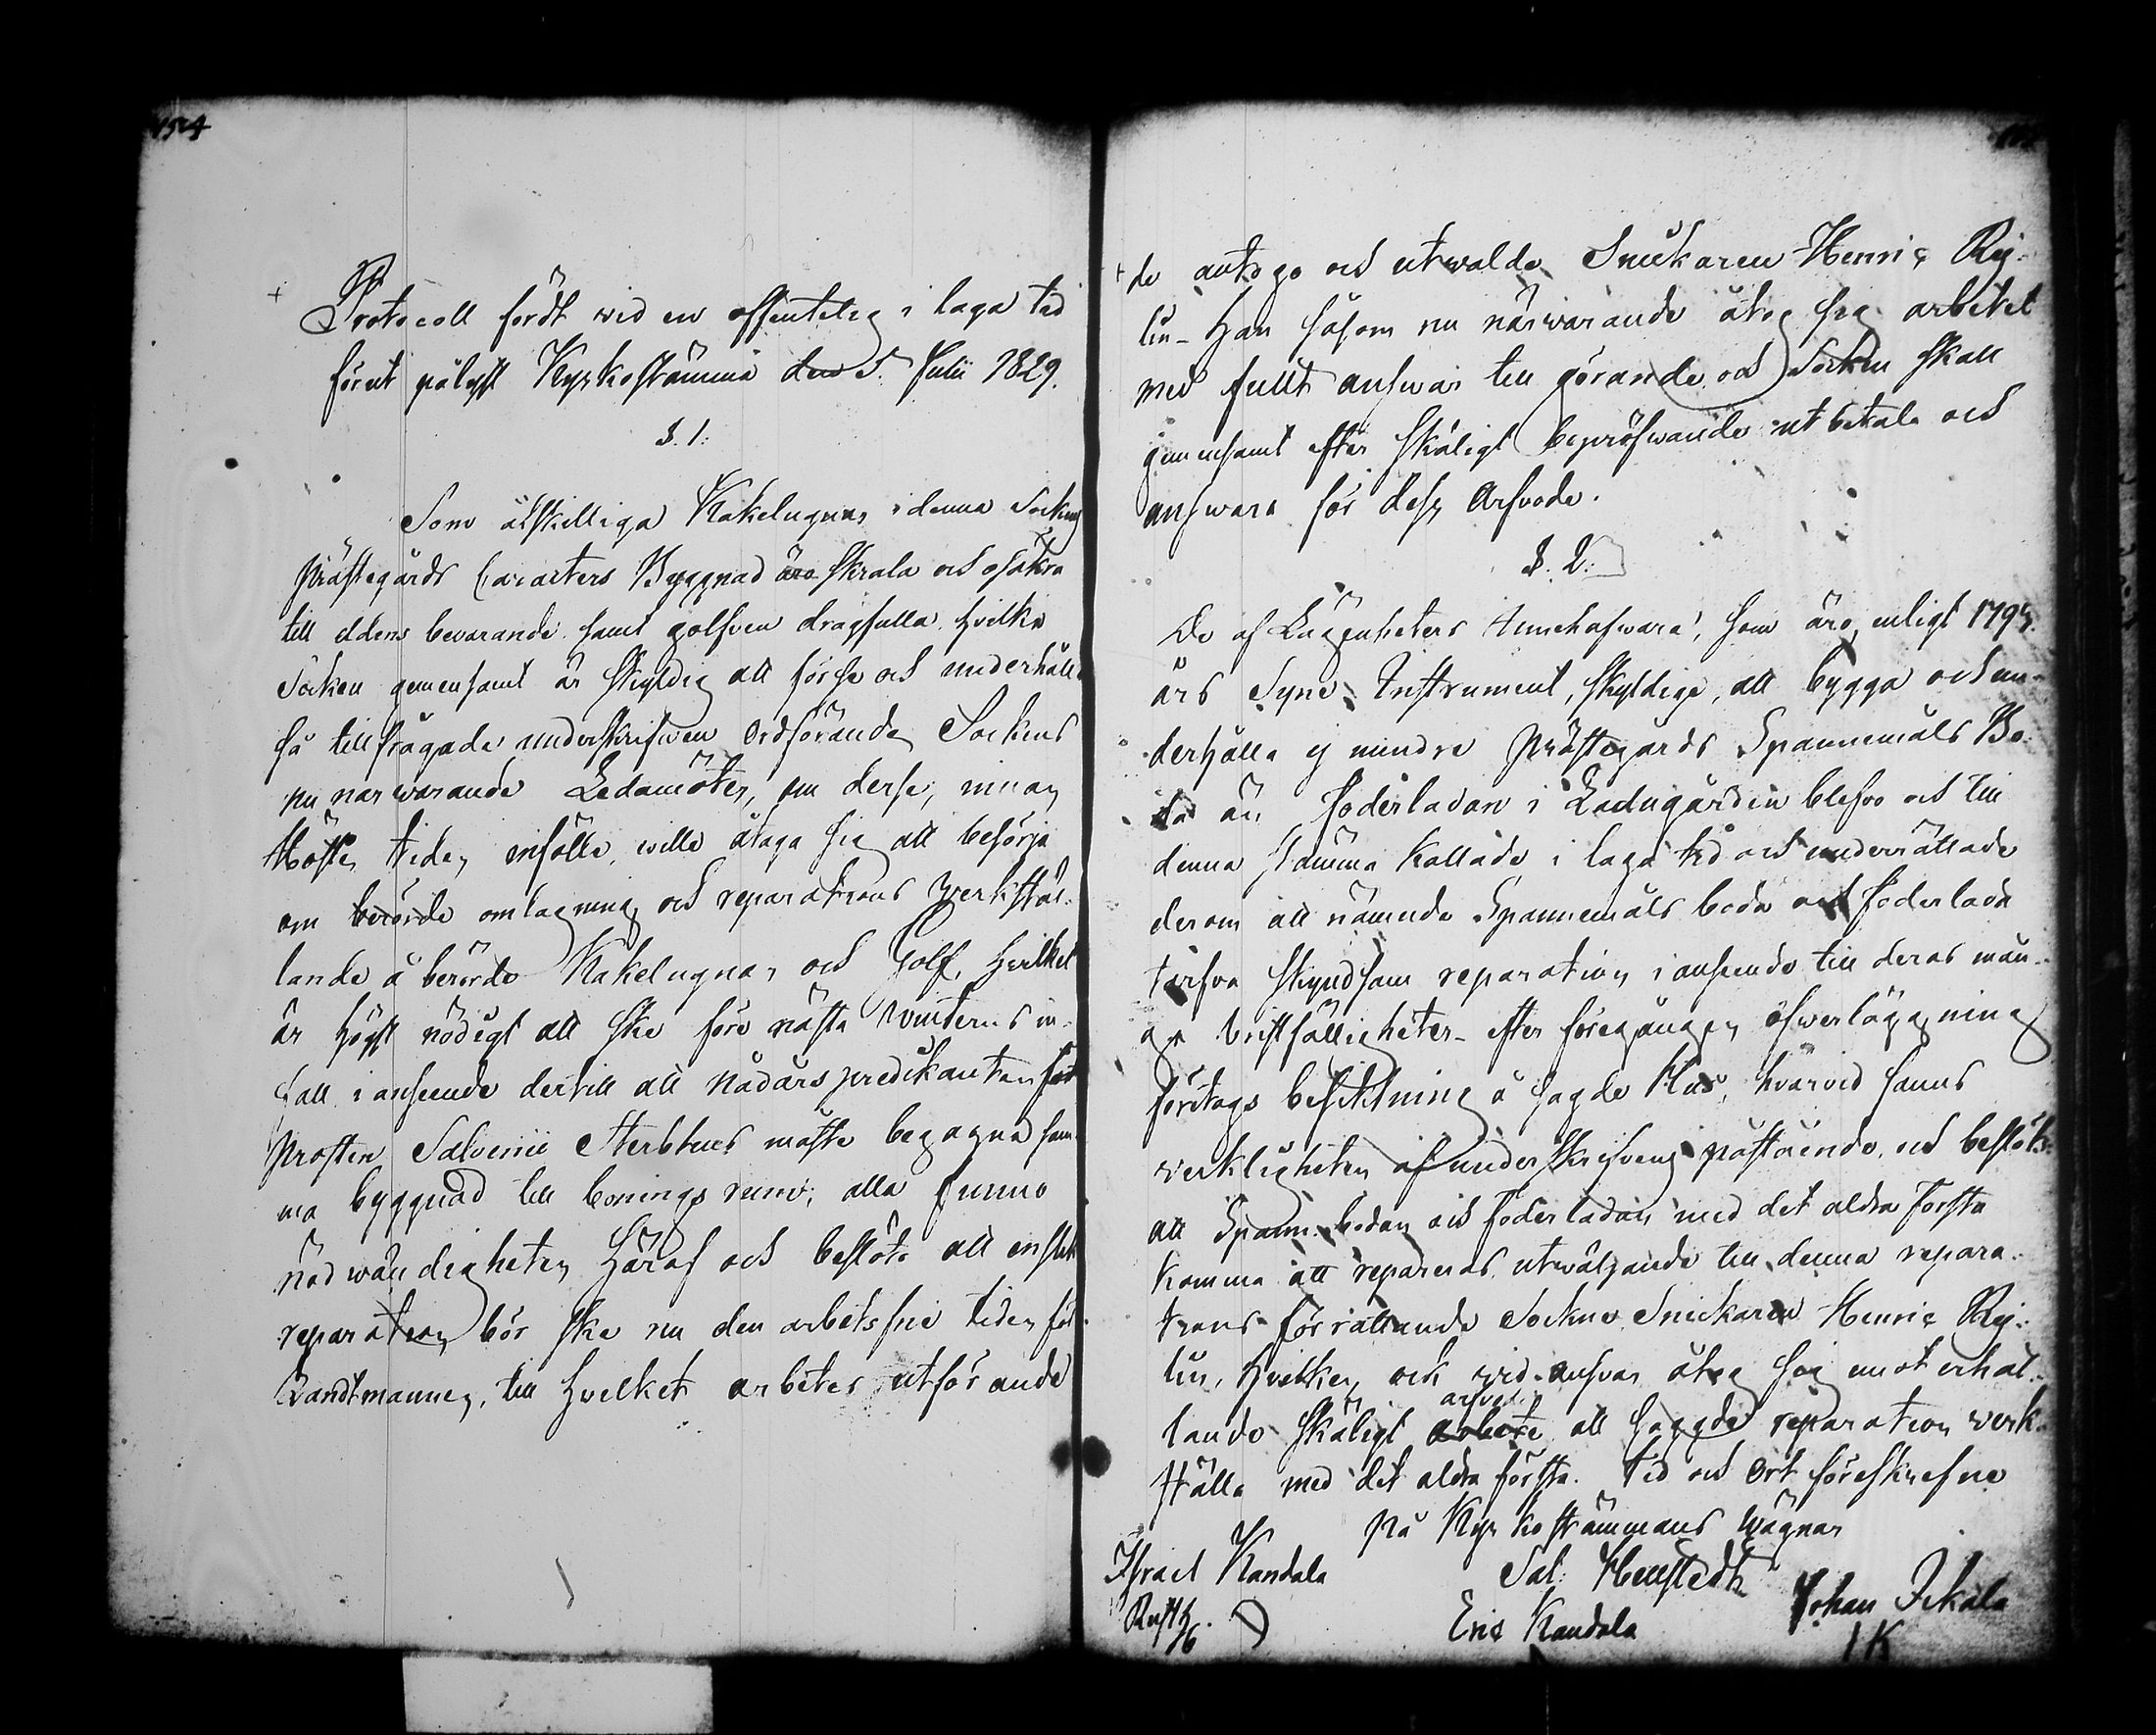 154
Protocoll fördt wid en offentelig i laga tid
förut pålyst Kyrkostämma den 5. Julii 1829.
§. 1:
Som åtskilliga Kakelugnar i denna Sockens
Prästegårds Caracters Byggnad äro skrala och osäkra
till eldens bevarande samt golfven dragfulla, hvilka
Socken gemensamt är skyldig att förse och underhålla
så tillfrågade underskrifwen Ordförande Sockens
nu narwarande Ledamöter, om derse, innan
Höste tiden infölle, wille åtaga sig att besörja
om berörde omlagning och reparations werkstäl-
lande å berörde Kakelugnar och Golf, hvilket
är högst nödigt att ske före nästa winterns in-
fall i anseende dertill att Nådårspredikanten
Prosten Salvenii Sterbhus måste begagna sam-
ma byggnad till bonings rum; alla funno
nödwändigheten häraf och beslöto att
reparation bör ske nu den arbetsfrie tiden för
Landtmannen, till hvilket arbetes utförande
de antogo och utwalde Snickaren Henric Rij-
lin - Han såsom nu närwarande åtog sig arbetet
med fullt answar till görande och Socken skall
gemensamt efter skäligt bepröfwande utbetala och
answara för dess Arfvode.
§. 2:
De af Lägenheters Innehafware, som äro, enligt 1795.
års Syne Instrument, skyldige, att bygga och un-
derhålla ej mindre Prästegårds Spannemåls Bo-
da än foderladan i Ladugården blefvo och till
denna stämma kallade i laga tid och underrättade
derom att nämnde Spannemåls boda och foderlada
tarfva skyndsam reparation i anseende till deras mån-
ga bristfälligheter - efter föregången öfwerläggning
företogs besiktning å sagde Hus, hvarvid fanns
verkligheten af underskrifvens påstående, och beslöts
att Spann. bodan och foderladan med det aldra första
komma att repareras utwäljande till denna repara-
tions förrättande Socknes Snickaren Henric Rij-
lin, hvilken ock wid answar åtog sig emot erhål-
lande skäligt arbete arfvode att sagde reparation werk-
ställa med det aldra första. Tid och Ort föreskrefne
På Kyrkostämmans wägnar
Israel Kandala
Sal: Hellstedt
Johan Ikala
Rusth.
Eric Kandola
IK